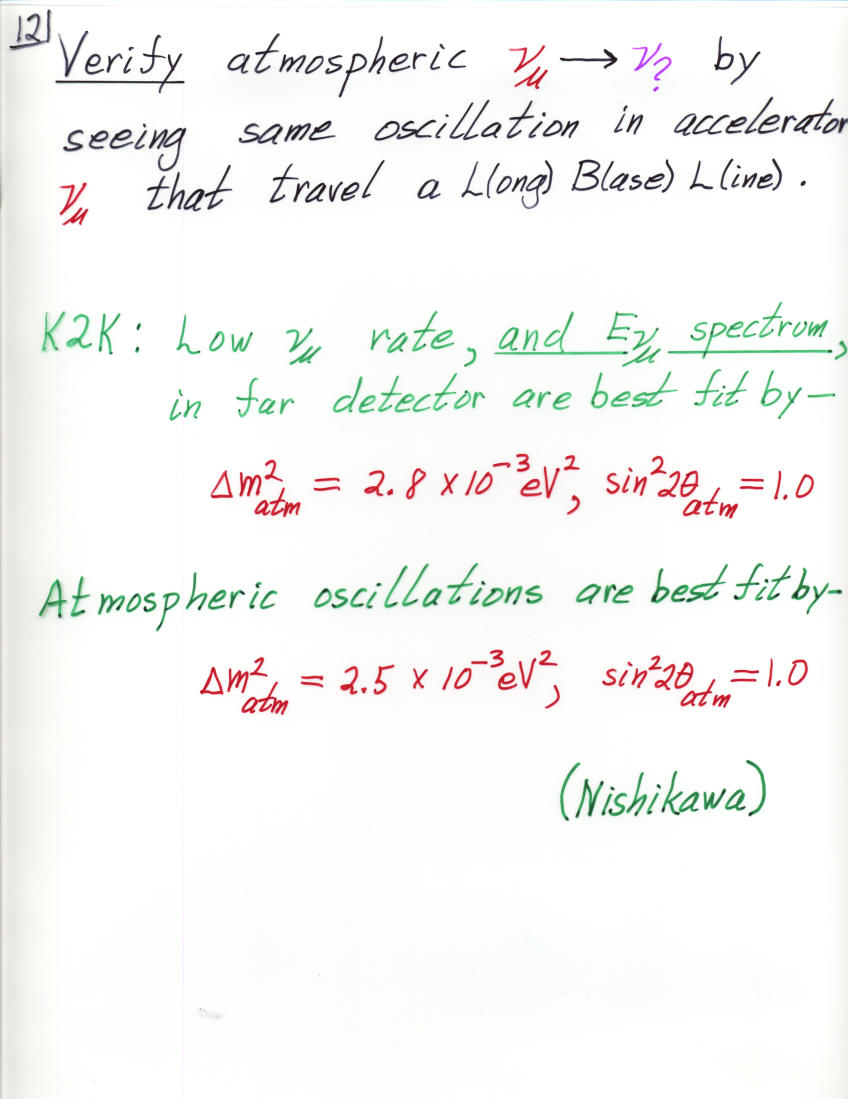 12|
Verify atmospheric ν_μ → ν_? by
seeing same oscillation in accelerator
ν_μ that travel a L(ong) B(ase) L(ine).
K2K: Low ν_μ rate, and E_ν_μ spectrum,
in far detector are best fit by—
Δm²_atm = 2.8 × 10⁻³ eV², sin²2θ_atm = 1.0
Atmospheric oscillations are best fit by-
Δm²_atm = 2.5 × 10⁻³ eV², sin²2θ_atm = 1.0
(Nishikawa)